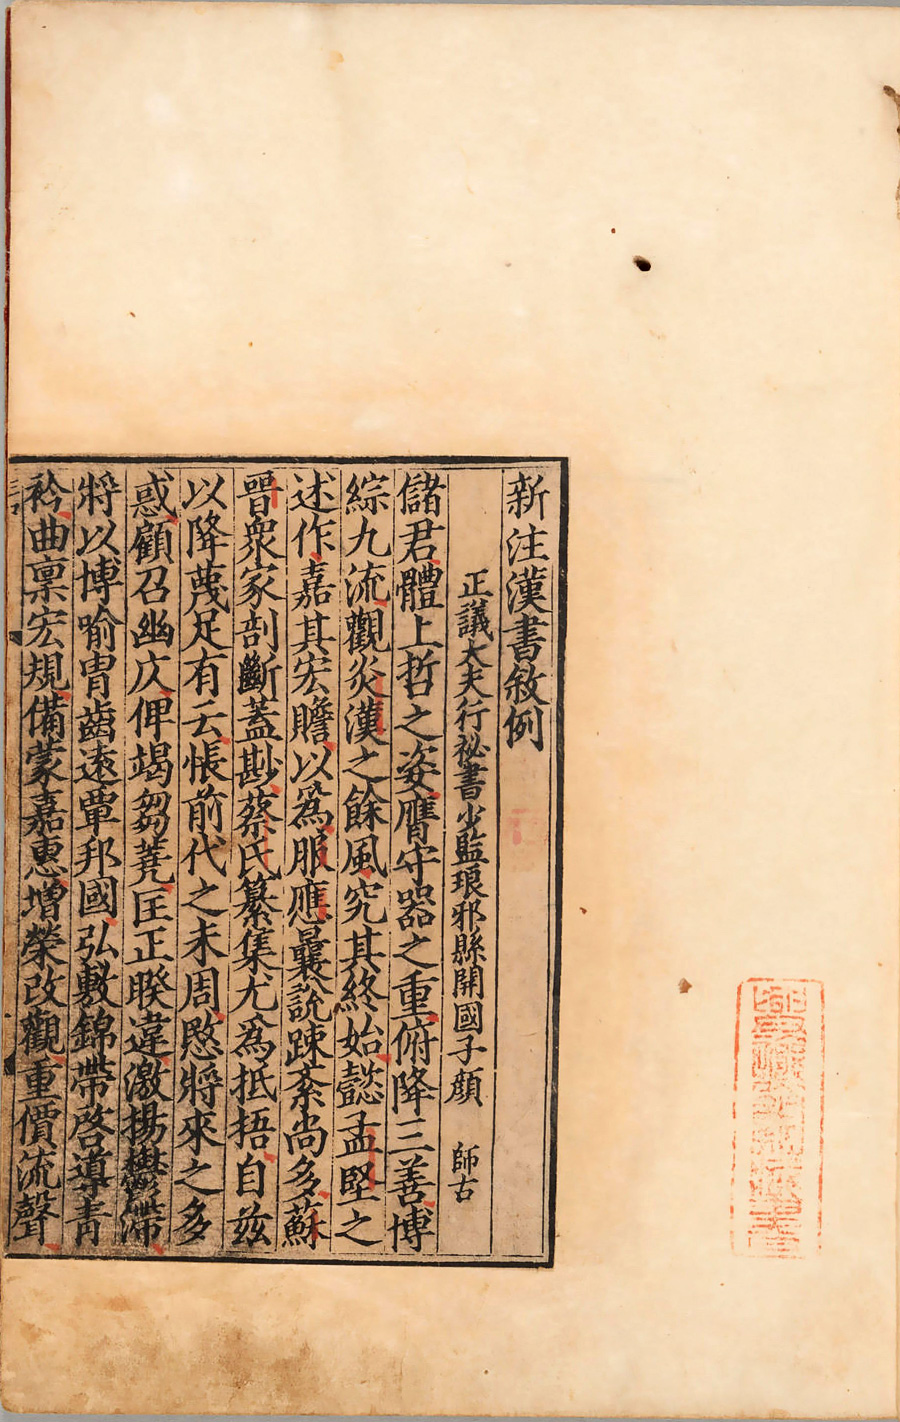 新注漢書敘例
正議大夫行祕書少監琅邪縣開國子顏 師古
儲君體上哲之姿膺守器之重俯降三善博
綜九流觀炎漢之餘風究其終始懿孟堅之
述作嘉其宏贍以為服應曩說疎紊尚多蘇
晉衆家剖斷蓋尠蔡氏纂集尤為抵捂自茲
以降蔑足有云悵前代之未周愍將來之多
惑顧召幽仄俾竭芻蕘匡正睽違激揚鬱滯
將以博喻胄齒遠覃邦國弘敷錦帶啓導青
衿曲稟宏規備蒙嘉惠增榮改觀重價流聲